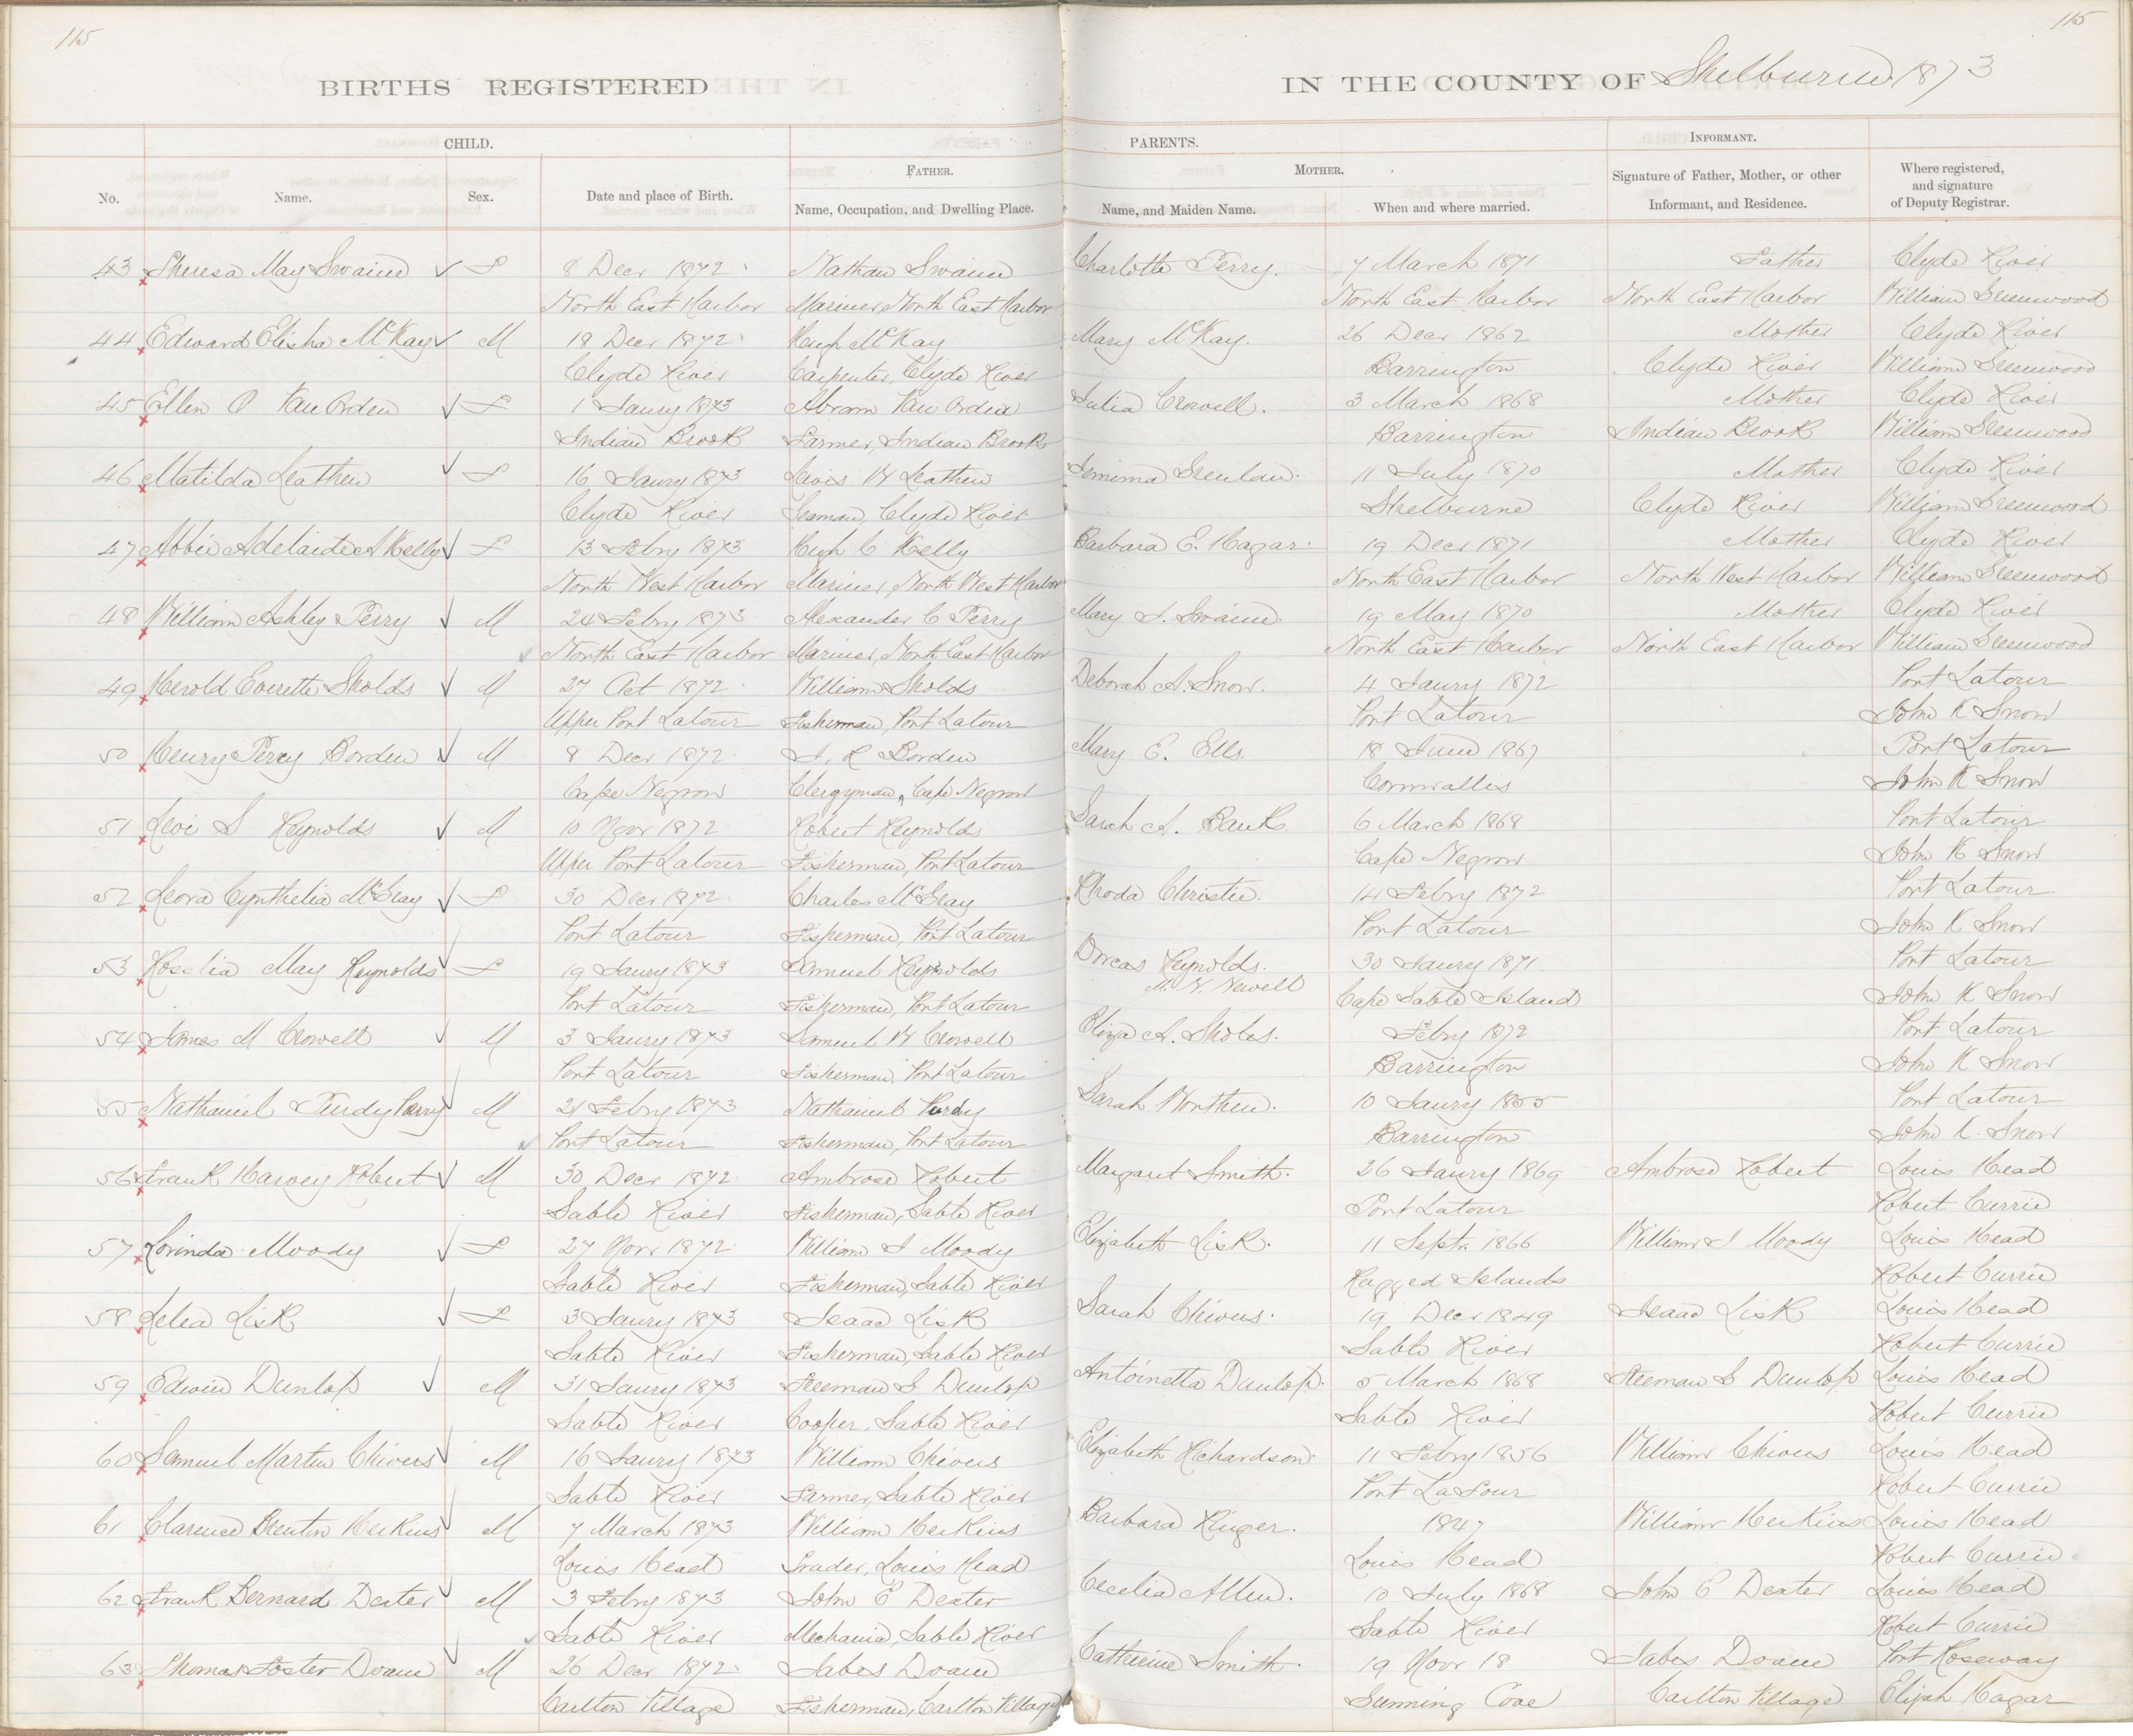 115
115
BIRTHS REGISTERED IN THE COUNTY OF Shelburne 1873
CHILD. PARENTS. INFORMANT.
FATHER. MOTHER. Where registered,
No. Name. Sex. Date and place of Birth. Name, Occupation, and Dwelling Place. Name, and Maiden Name. When and where married. Signature of Father, Mother, or other and signature
Informant, and Residence. of Deputy Registrar.
43 Theresa May Swaine F 8 Decr 1872 Nathan Swaine Charlotte Perry. 7 March 1871 Father Clyde River
North East Harbor Mariner, North East Harbor North East Harbor North East Harbor William Greenwood
44 Edward Elisha McKay M 18 Decr 1872 Hugh McKay Mary McKay. 26 Decr 1862 Mother Clyde River
Clyde River Carpenter, Clyde River Barrington Clyde River William Greenwood
45 Ellen O Van Orden F 1 Jaury 1873 Abram Van Orden Julia Crowell. 3 March 1868 Mother Clyde River
Indian Brook Farmer, Indian Brook Barrington Indian Brook William Greenwood
46 Matilda Leathen F 16 Jaury 1873 Lewis W Leathen Jemima Greenlaw. 11 July 1870 Mother Clyde River
Clyde River Seaman, Clyde River Shelburne Clyde River William Greenwood
47 Abbie Adelaide A Kelly F 13 Febry 1873 Hugh C Kelly Barbara E. Hagar. 19 Decr 1871 Mother Clyde River
North West Harbor Mariner, North West Harbor North East Harbor North West Harbor William Greenwood
48 William Ashley Perry M 24 Febry 1873 Alexander C Perry Mary J. Swaine. 19 May 1870 Mother Clyde River
North East Harbor Mariner, North East Harbor North East Harbor North East Harbor William Greenwood
49 Herold Everette Sholds M 27 Oct 1872 William Sholds Deborah A. Snow. 4 Jaury 1872 Port Latour
Upper Port Latour Fisherman, Port Latour Port Latour John K Snow
50 Henry Percy Borden M 8 Decr 1872 J. R Borden Mary E. Ells. 18 June 1867 Port Latour
Cape Negrow Clergyman, Cape Negrow Cornwallis John K Snow
51 Levi S Reynolds M 10 Novr 1872 Robert Reynolds Sarah A. Banks 6 March 1868 Port Latour
Upper Port Latour Fisherman, Port Latour Cape Negrow John K Snow
52 Leora Cynthelia McGray F 30 Decr 1872 Charles McGray Rhoda Christie. 14 Febry 1872 Port Latour
Port Latour Fisherman, Port Latour Port Latour John K Snow
53 Rosalia May Reynolds F 19 Jaury 1873 Samuel Reynolds Dorcas Reynolds. 30 Jaury 1871 Port Latour
Port Latour Fisherman, Port Latour M. N. Newell Cape Sable Island John K Snow
54 James M Crowell M 3 Jaury 1873 Samuel W Crowell Eliza A. Sholes. Febry 1872 Port Latour
Port Latour Fisherman, Port Latour Barrington John K Snow
55 Nathaniel Purdy Parry M 21 Febry 1873 Nathaniel Purdy Sarah Worthen. 10 Jaury 1855 Port Latour
Port Latour Fisherman, Port Latour Barrington John K. Snow
56 Frank Harvey Robert M 30 Decr 1872 Ambrose Robert Margaret Smith. 26 Jaury 1869 Ambrose Robert Louis Head
Sable River Fisherman, Sable River Port Latour Robert Currie
57 Lorinda Moody F 27 Novr 1872 William J Moody Elizabeth Lisk. 11 Septr 1866 William J Moody Louis Head
Sable River Fisherman, Sable River Ragged Islands Robert Currie
58 Lelea Lisk F 3 Jaury 1873 Isaac Lisk Sarah Chivers. 19 Decr 1849 Isaac Lisk Louis Head
Sable River Fisherman, Sable River Sable River Robert Currie
59 Edwin Dunlop M 31 Jaury 1873 Freeman S Dunlop Antoinetta Dunlop. 5 March 1868 Freeman S Dunlop Louis Head
Sable River Cooper, Sable River Sable River Robert Currie
60 Samuel Martin Chivers M 16 Jaury 1873 William Chivers Elizabeth Richardson. 11 Febry 1856 William Chivers Louis Head
Sable River Farmer, Sable River Port LaTour Robert Currie
61 Clarence Brenton Herkins M 7 March 1873 William Herkins Barbara Ringer. 1847 William Herkins Louis Head
Louis Head Trader, Louis Head Louis Head Robert Currie
62 Frank Bernard Dexter M 3 Febry 1873 John E Dexter Cecelia Allen. 10 July 1868 John E Dexter Louis Head
Sable River Mechanic, Sable River Sable River Robert Currie
63 Thomas Foster Doane M 26 Decr 1872 Jabes Doane Catherine Smith. 19 Novr 18 Jabes Doane Port Roseway
Carlton Village Fisherman, Carlton Village Gunning Cove Carlton Village Elijah Hagar